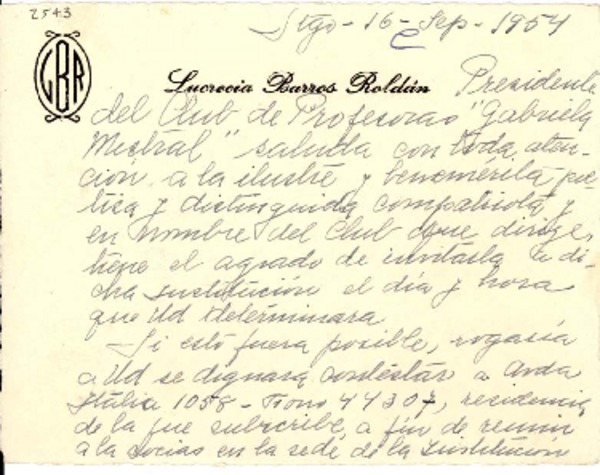 2543
Stgo - 16 - Sep - 1954
LBR
Lucrecia Barros Roldán Presidente
del Club de Profesoras "Gabriela
Mistral" saluda con toda aten-
ción a la ilustre y benemérita poe-
tisa y distinguida compatriota y
en nombre del Club que dirige,
tiene el agrado de invitarla a di-
cha institución el día y hora
que Ud determinara
Si esto fuera posible, rogaría
a Ud se dignara contestar a Avda
Italia 1058 - Fono 44307, residencia
de la que subscribe, a fin de reunir
a la socias en la sede de la Institución